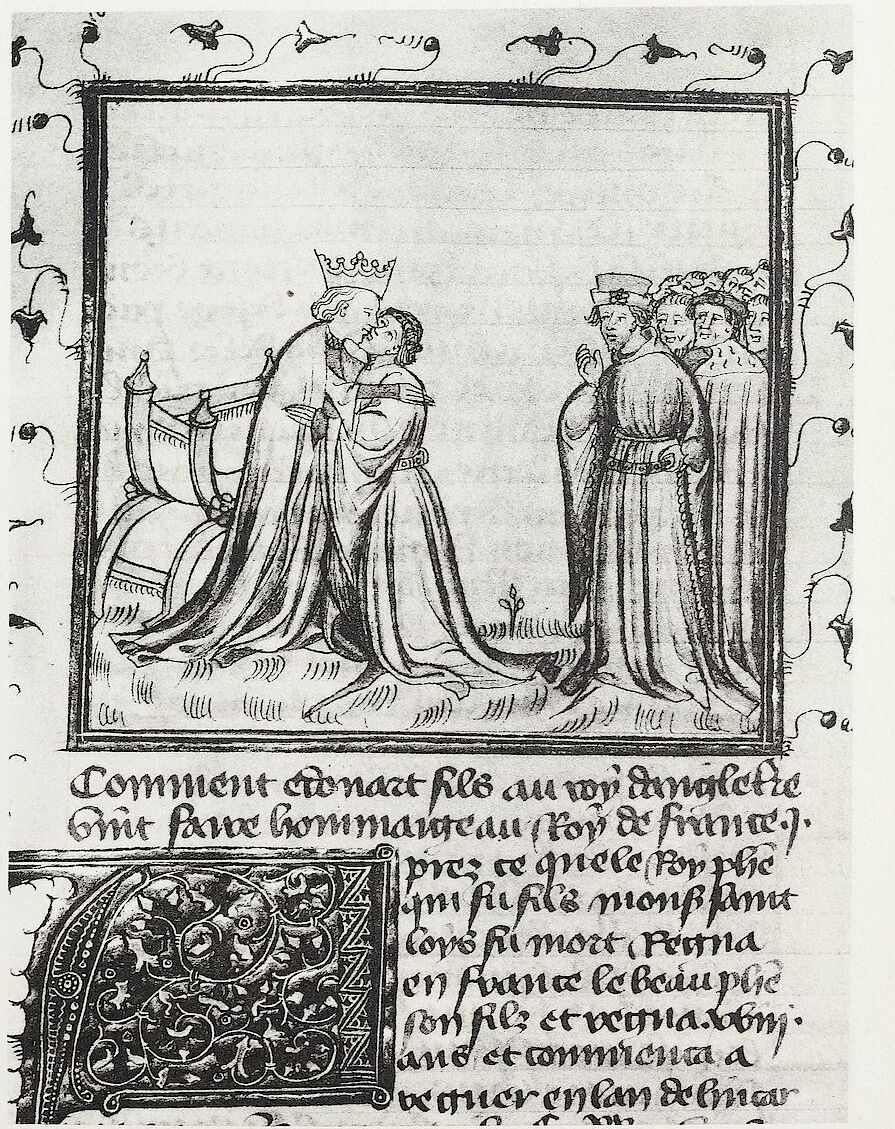 Comment edouart fils au roy dangleterre
vint faire hommaige au Roy de france. j.
Aprez ce que le Roy phē
qui fu filz mons̄ saint
loys fu mort Regna
en france le beau phē
son filz et regna. xviij.
ans et commenca a
regner en lan de lincar